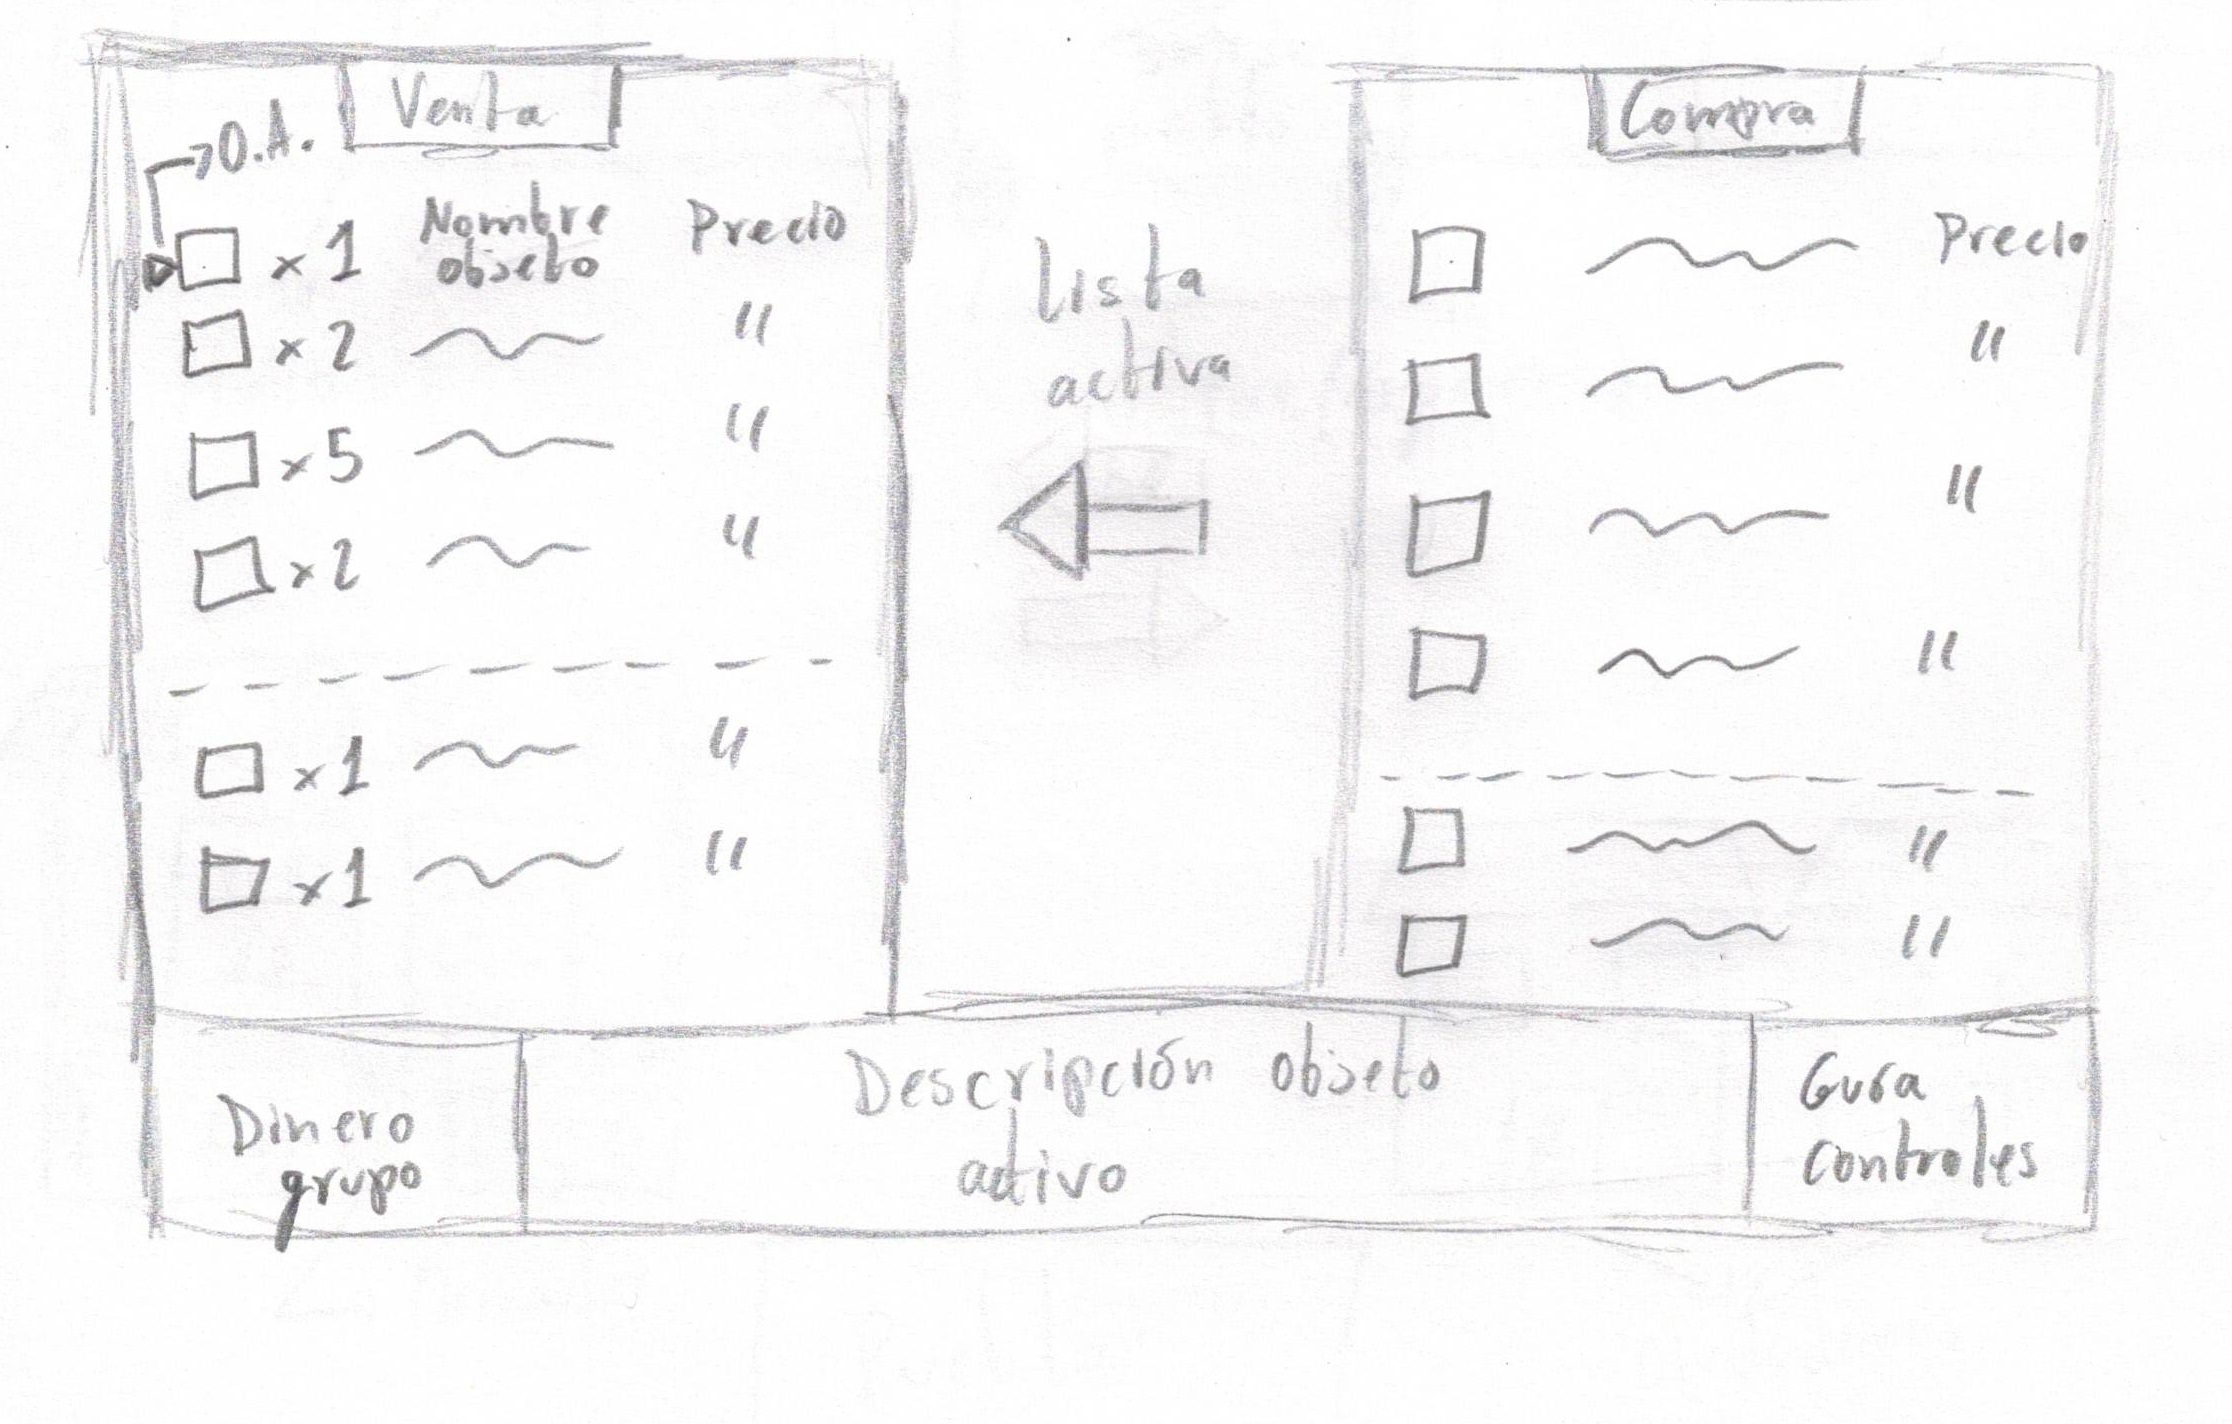 Venta
O.A.
x 1 Nombre objeto Precio
x 2 "
x 5 "
x 2 "
x 1 "
x 1 "
Lista
activa
Compra
Precio
"
"
"
"
"
Dinero
grupo
Descripción objeto
activo
Guía
controles